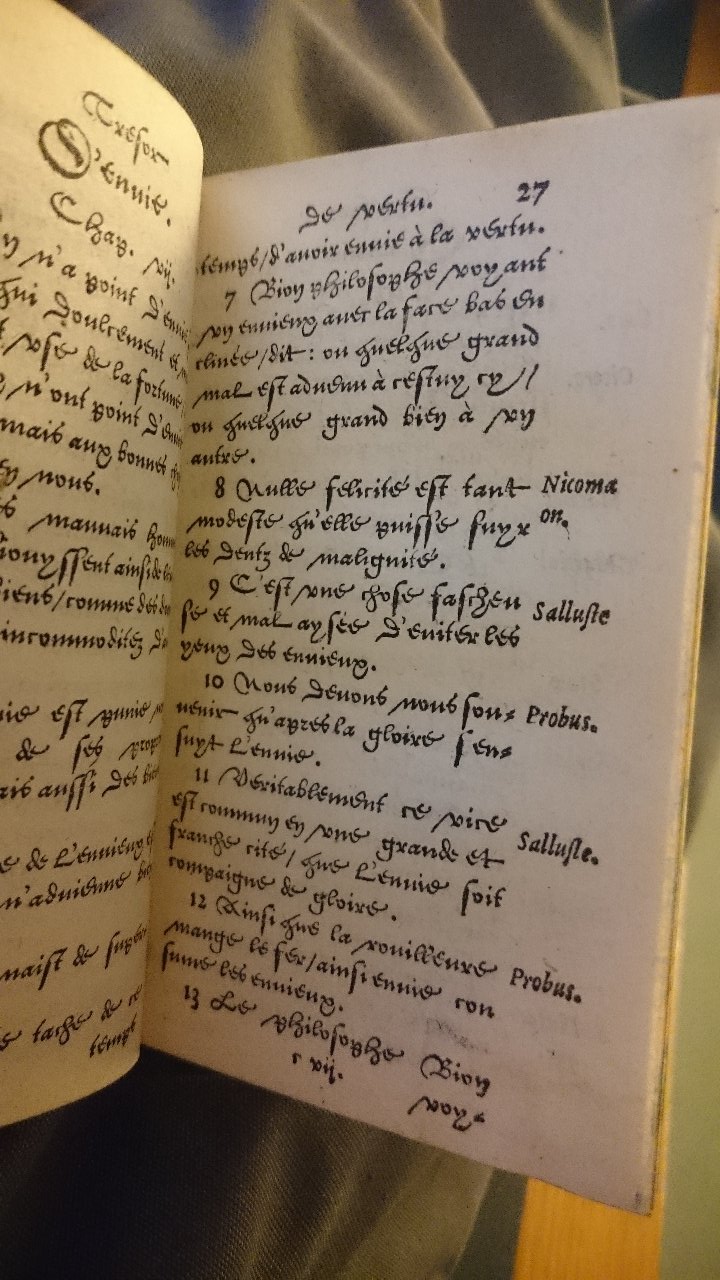 Tresor
D'ennie.
Chap. vij.
n'a point d'enuie
hui doulcement et
vse de la fortune
n'ont point d'enuie
mais aux bonnes
nous.
mauuais hom
iouyssent ainsi de
iens/comme des
incommoditez
est punie
de ses prop
ais aussi des
de L'ennieux
n'aduienne
naist de super
tache de ce
tempt
de vertu. 27
temps/d'auoir ennie à la vertu.
7 Bion philosophe voyant
vn ennieux auec la face bas en
clinée/dit: ou quelque grand
mal est aduenu à cestuy cy//
ou quelque grand bien à vn
autre.
8 Nulle felicité est tant Nicomæ
modeste qu'elle puisse fuyr on.
les dentz de malignité.
9 C'est vne chose fascheu Salluste
se et mal aysée d'euiter les
yeux des ennieux.
10 Nous deuons nous sou= Probus.
uenir qu'apres la gloire s'en=
suyt L'ennie.
11 Veritablement ce vice
est commun en vne grande et Salluste.
franche cité/ que L'ennie soit
compaigne de gloire.
12 Ainsi que la rouilleure
mange le fer/ainsi ennie con Probus.
sume les ennieux.
13 Le philosophe Bion
c vij.
voy=